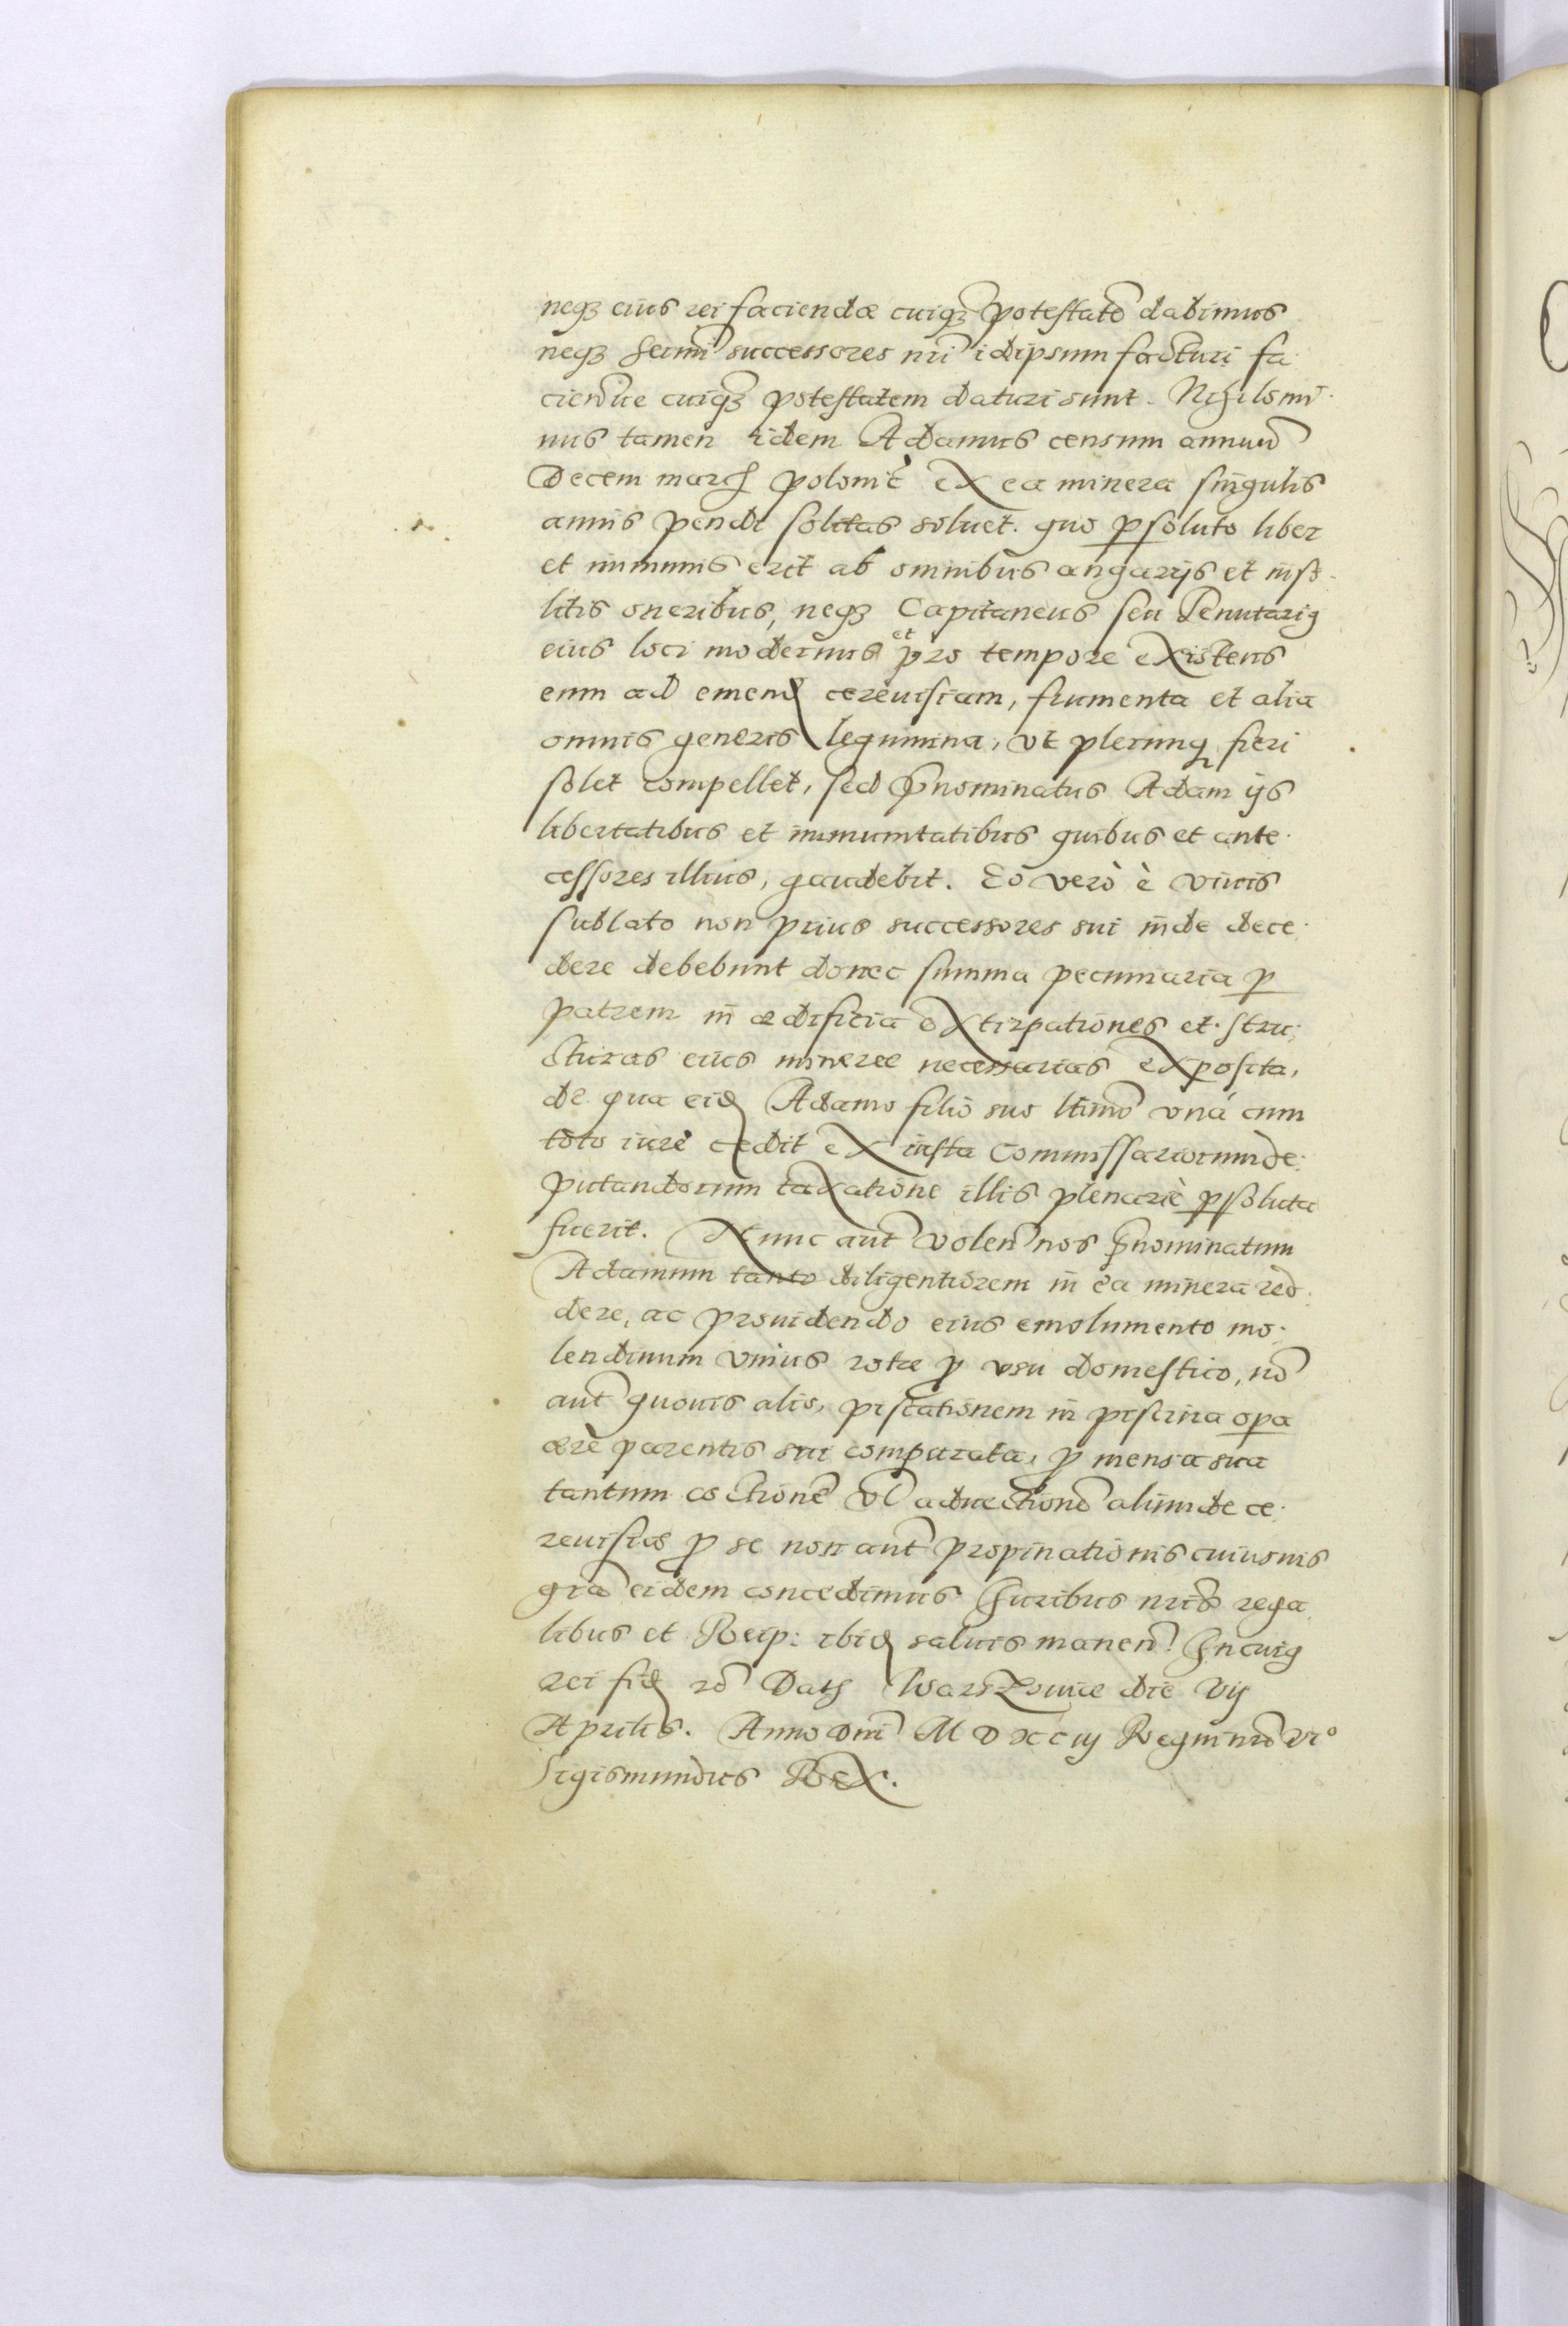 neqȝ eius rei faciendæ cuiqȝ potestatē dabimus
neqȝ sermi successores nri idipsum facturi fa
ciendve cuiqȝ potestatem daturi sunt. Nihilomi
nus tamen idem Adamus censum annuū
Decem march polonic ex ea minera singulis
annis pendi solitas soluet. quo psoluto liber
et immunis erit ab omnibus angarijs et inso
litis oneribus, neqȝ Capitaneus seu Tenutariꝰ
eius loci modernus et pro tempore existens
eum ad emend cereuisiam, frumenta et alia
omnis generis legumina, vt plerunq fieri
solet compellet, sed pnominatus Adam ijs
libertatibus et immunitatibus quibus et ante
cessores illius, gaudebit. Eo verò è viuis
sublato non prius successores sui inde dece
dere debebunt donec summa pecuniaria p
patrem in ædificia extirpationes et stru
cturas eius mineræ necessarias exposita,
de qua eid Adamo filio suo ltimo vnà cum
toto iure cedit ex iusta Commissariorum de
putandorum taxatione illis plenariè psoluta
fuerit. Nunc aut volen nos pnominatum
Adamum tanto diligentiorem in ea minera red
dere, ac prouidendo eius emolumento mo
lendinum vnius rotæ p vsu domestico, nō
aut quouis alio, piscationem in piscina opa
ære parentis sui comparata, p mensa sua
tantum coctionē vl aduectionē aliunde ce
reuisiæ p se non aut propinationis cuiusuis
gra eidem concedimus Iuribus nris rega
libus et Reip: ibid saluis manen. In cuiꝰ
rei fid rē Dat Warszouiæ die Vij
Aprilis. Anno Dni M D XC iij Regni nri VIº
Sigismundus Rex.